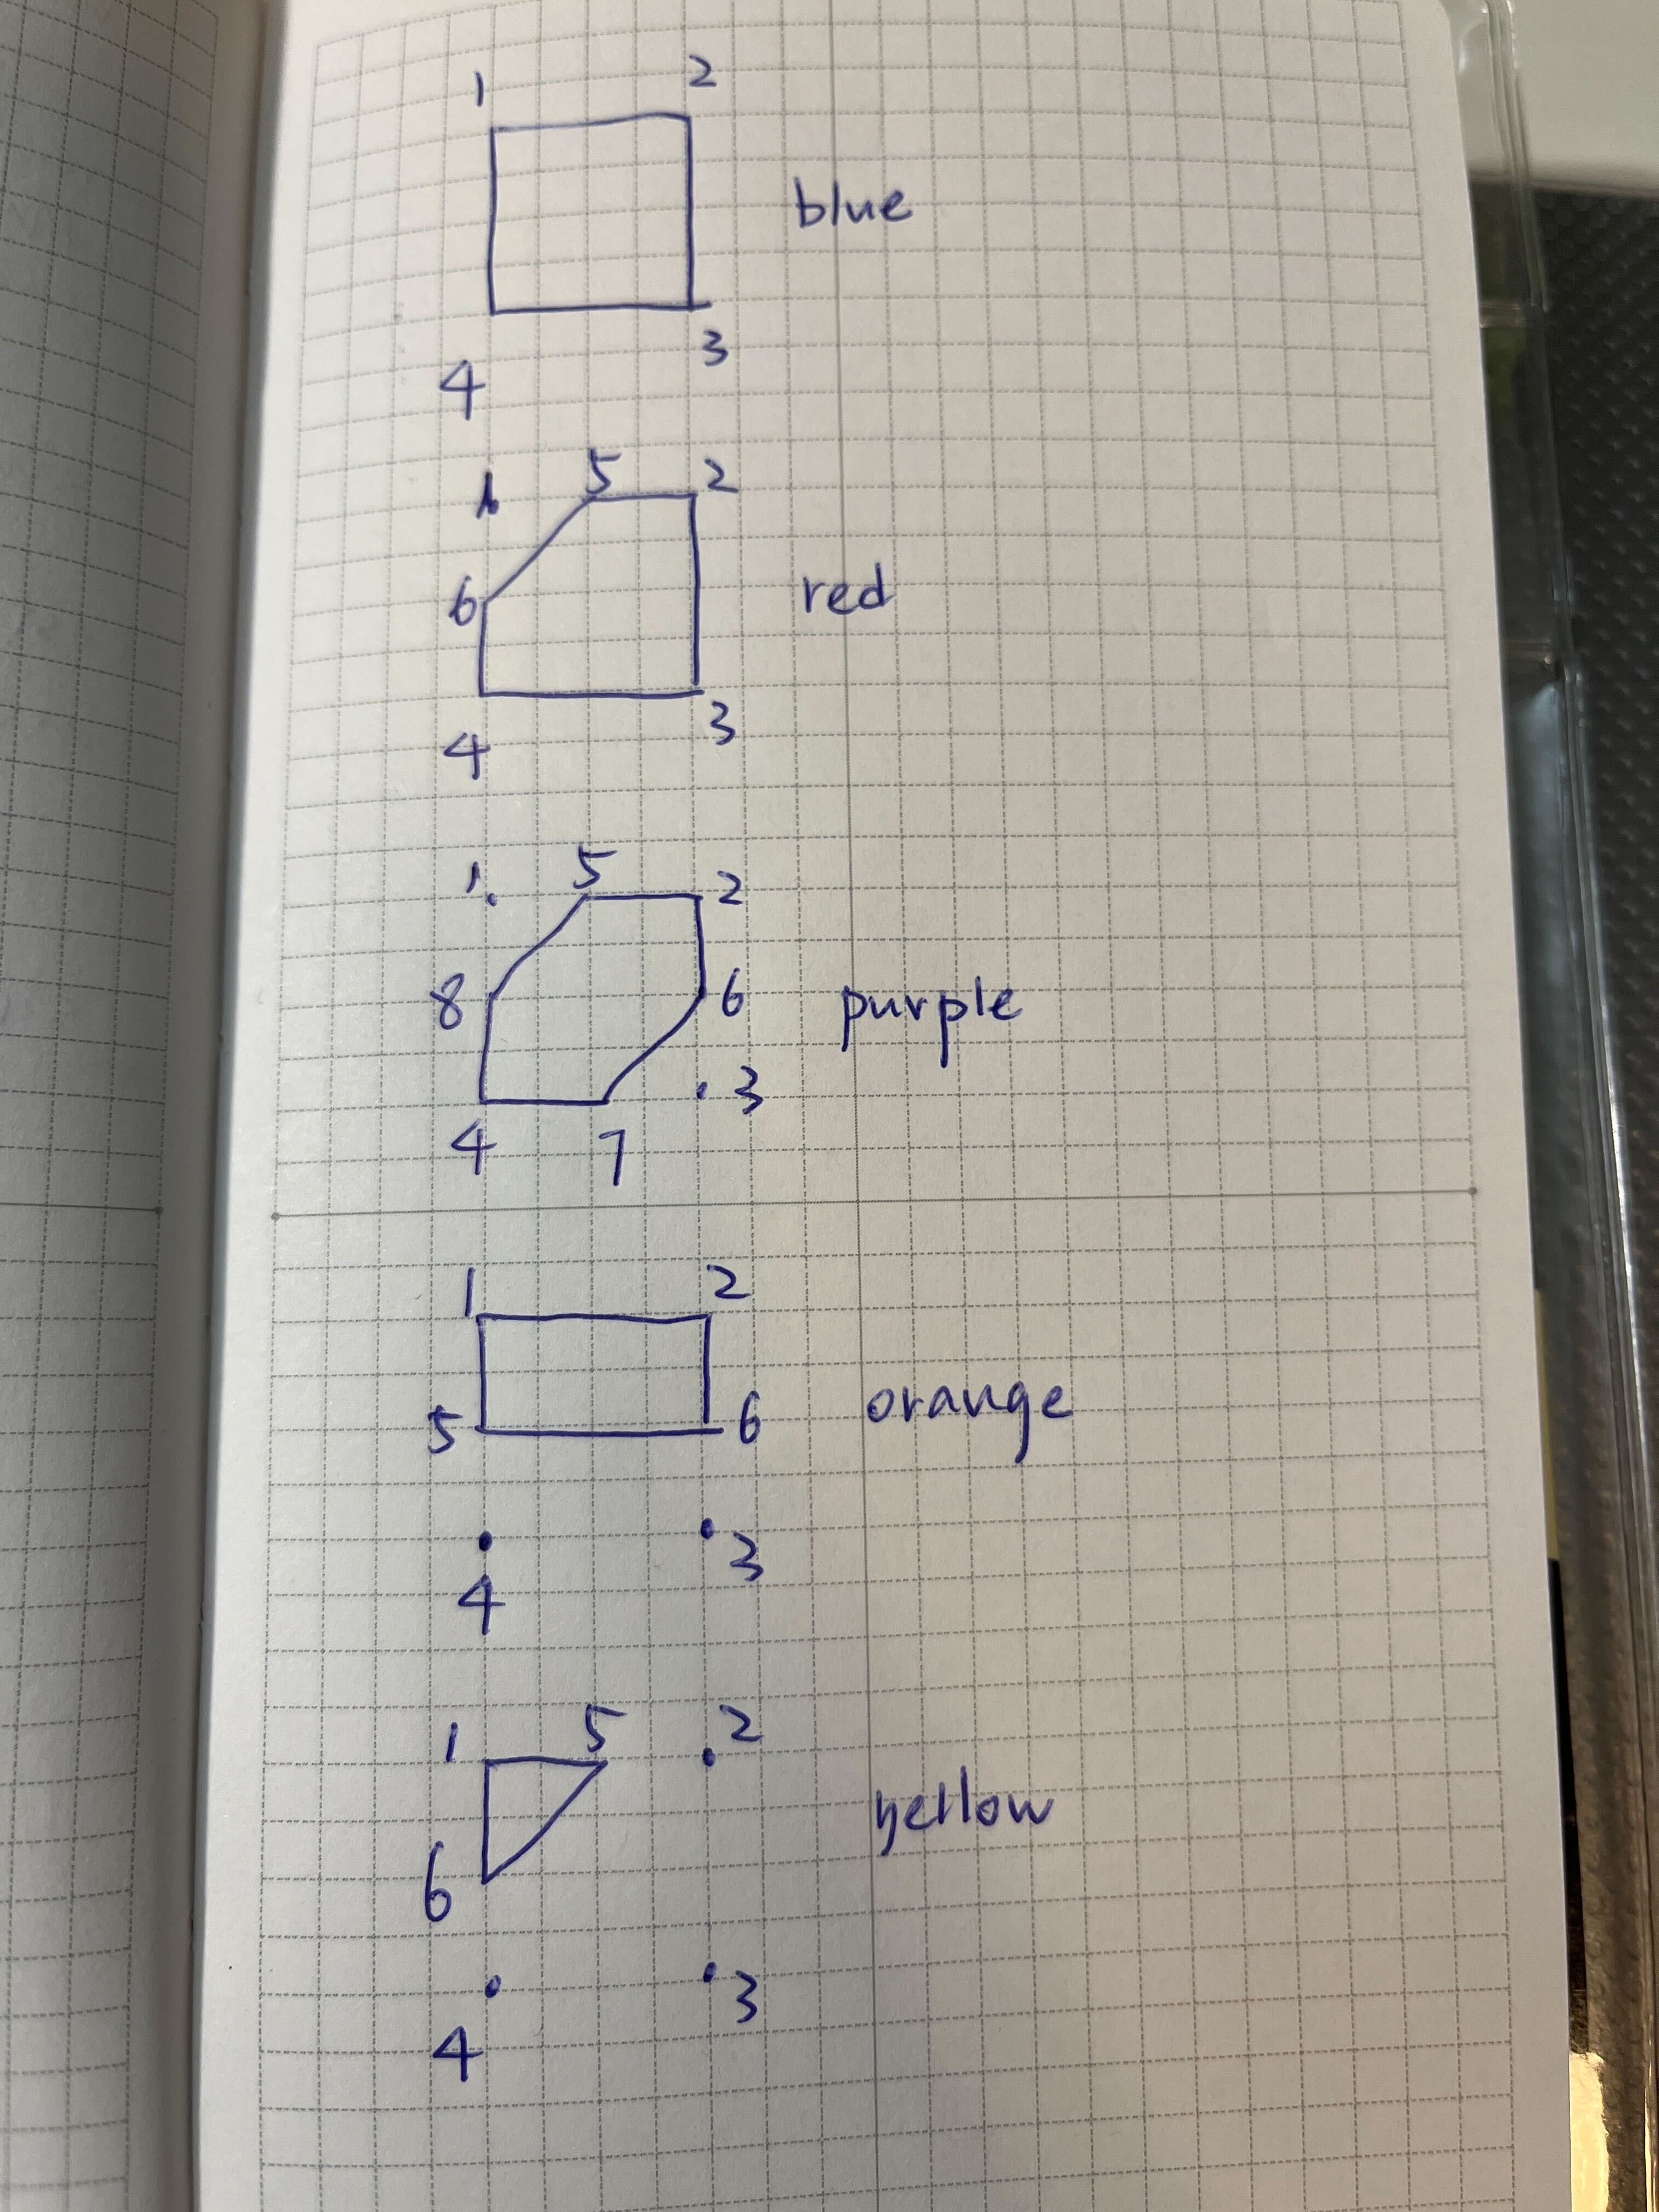 1 2
blue
4 3
1 5 2
6 red
4 3
1 5 2
8 6 purple
3
4 7
1 2
5 6 orange
4 3
1 5 2
yellow
6
3
4